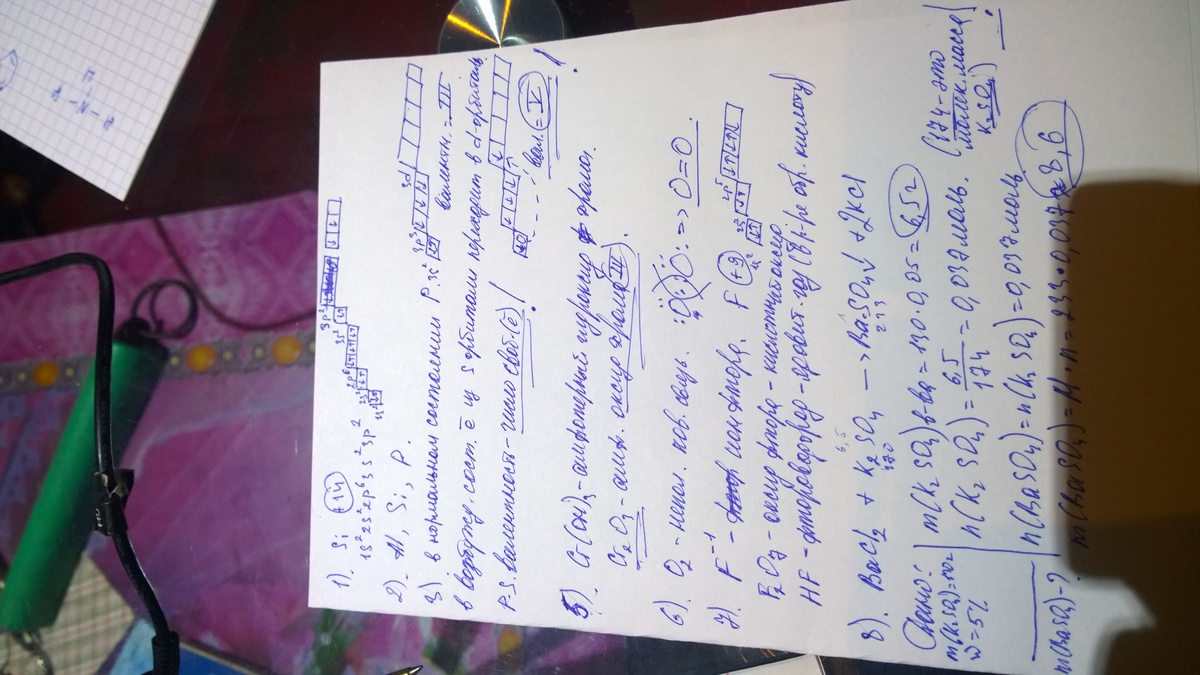 1). Si +14
1s² 2s² 2p⁶ 3s² 3p²
1s² 2s² 2p⁶ 3s² 3p²
2). Al, Si, P.
3). в нормальном состоянии P 3s² 3p³ 3d
валентн. = III
в возбужд. сост. ē из s орбитали переходит в d-орбиталь
P.S. валентность - число своб. (ē)! вал. = V!
5). Cr(OH)₃ - амфотерный гидроксид хрома.
Cr₂O₃ - амф. оксид хрома(III).
6). O₂ - непол. ков. связь. :O::O: => O=O.
7). F⁻¹ - ион фтора. F +9 1s² 2s² 2p⁵
F₂O₇ - оксид фтора - кислотн. оксид
HF - фтороводород - (в р-ре обр. кислоту)
8). BaCl₂ + K₂SO₄ —> BaSO₄↓ + 2KCl
6,5
170
233
Дано:
m(K₂SO₄) в-ва = 130·0,05 = 6,5г
w = 5%
n(K₂SO₄) = 6,5/174 = 0,037 моль. (174 - это молек. масса K₂SO₄)
n(BaSO₄) = n(K₂SO₄) = 0,037 моль
m(BaSO₄) - ?
m(BaSO₄) = M·n = 233·0,037 = 8,6